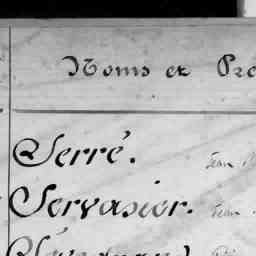 Noms et Pré
Serré. Jean
Servasier. Jean